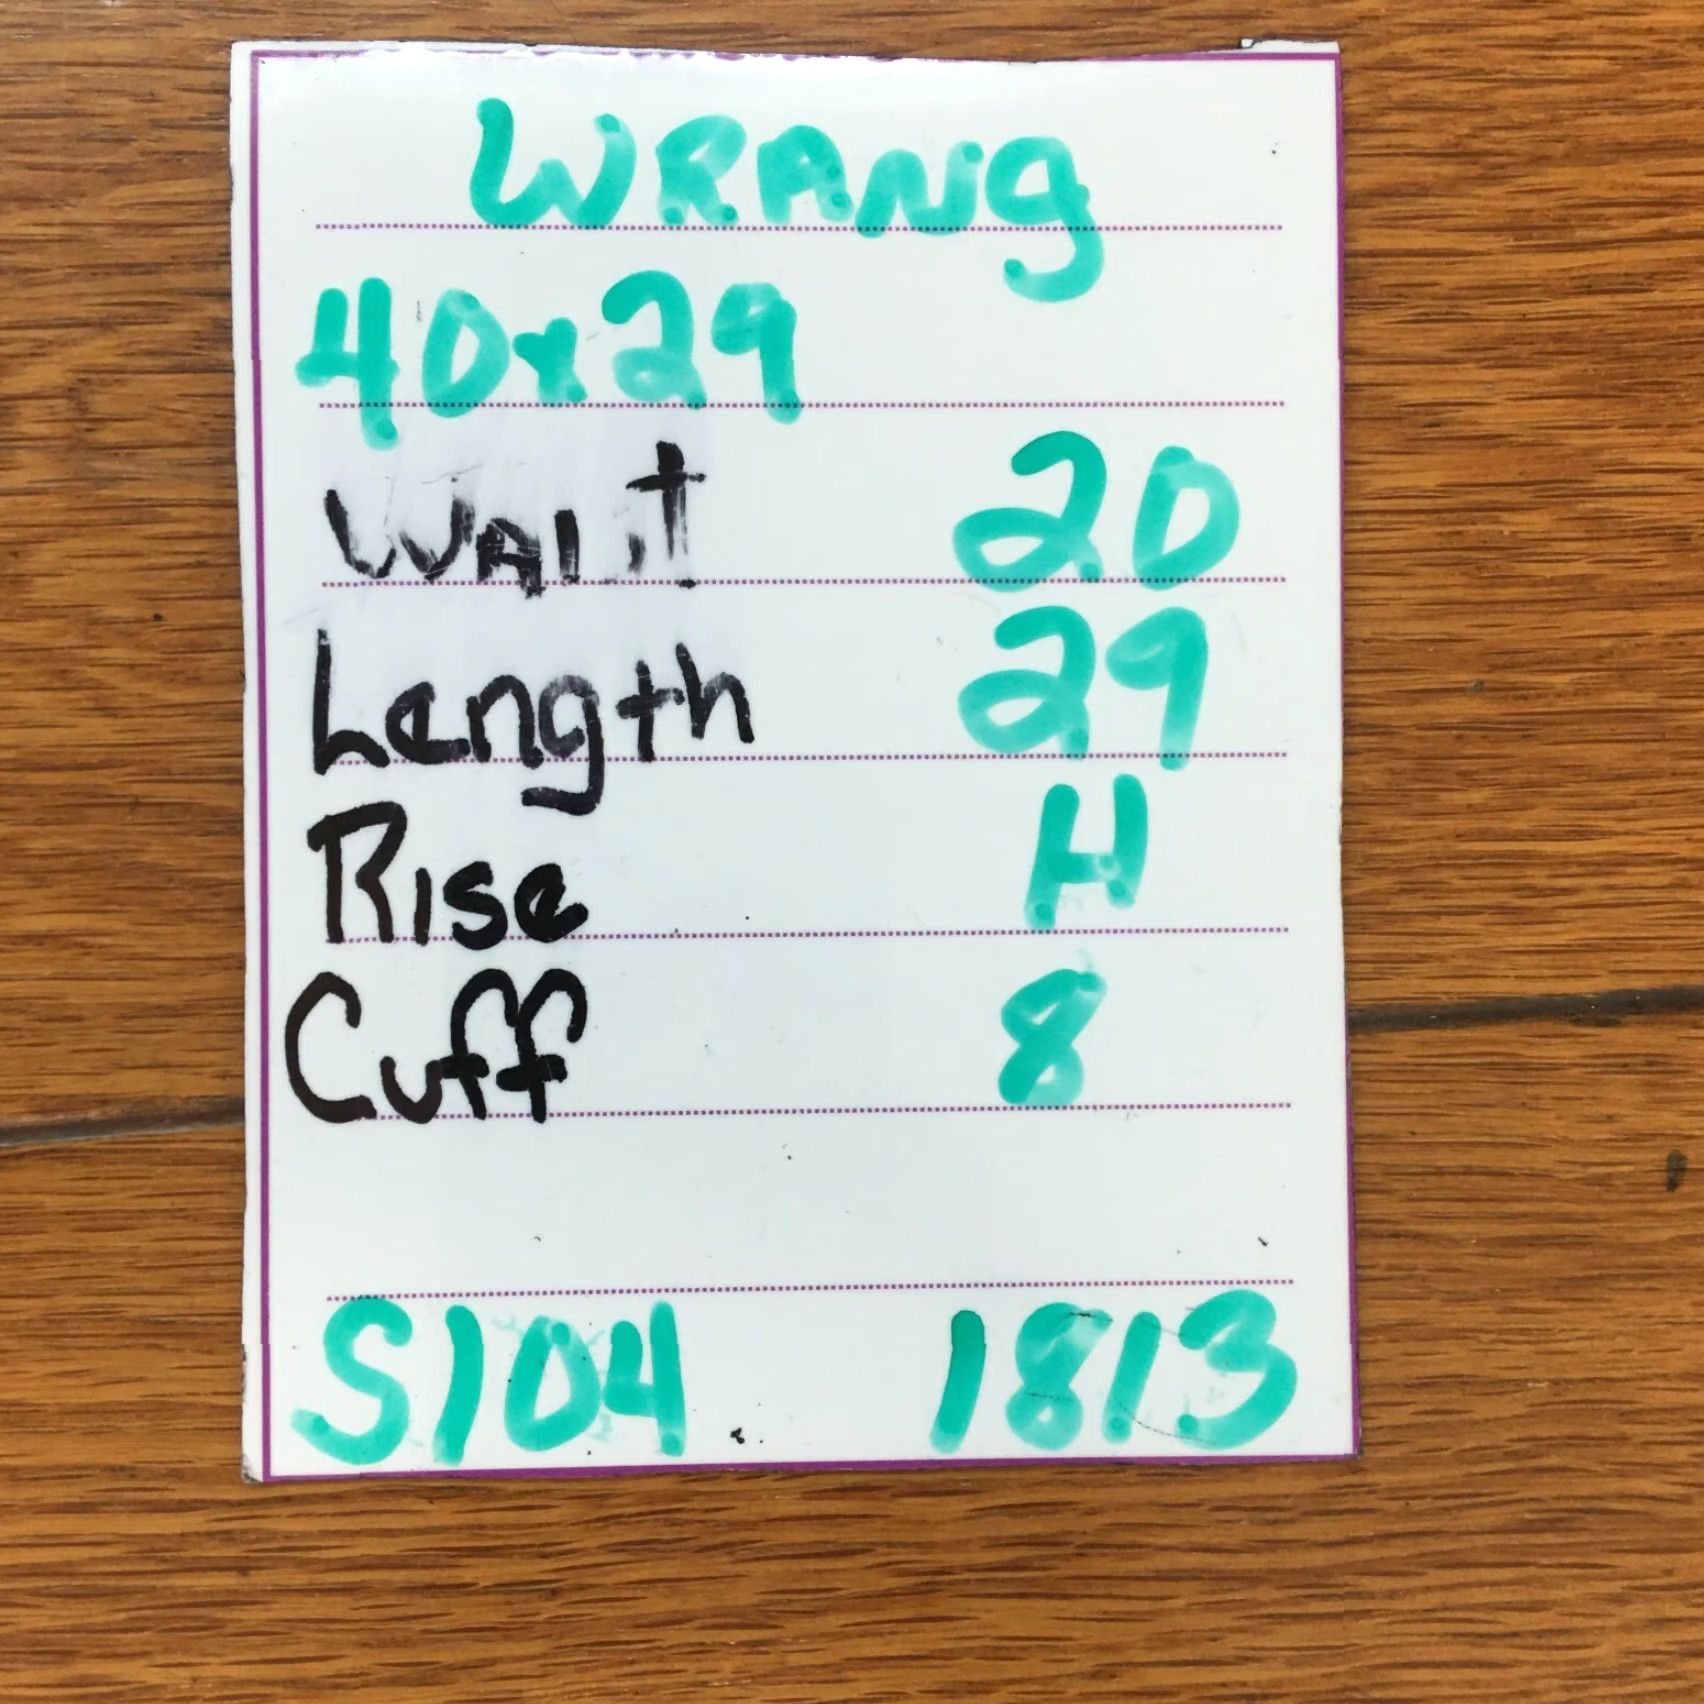 WRANg
40x29
WAIst 20
Length 29
Rise H
Cuff 8
S104 1813